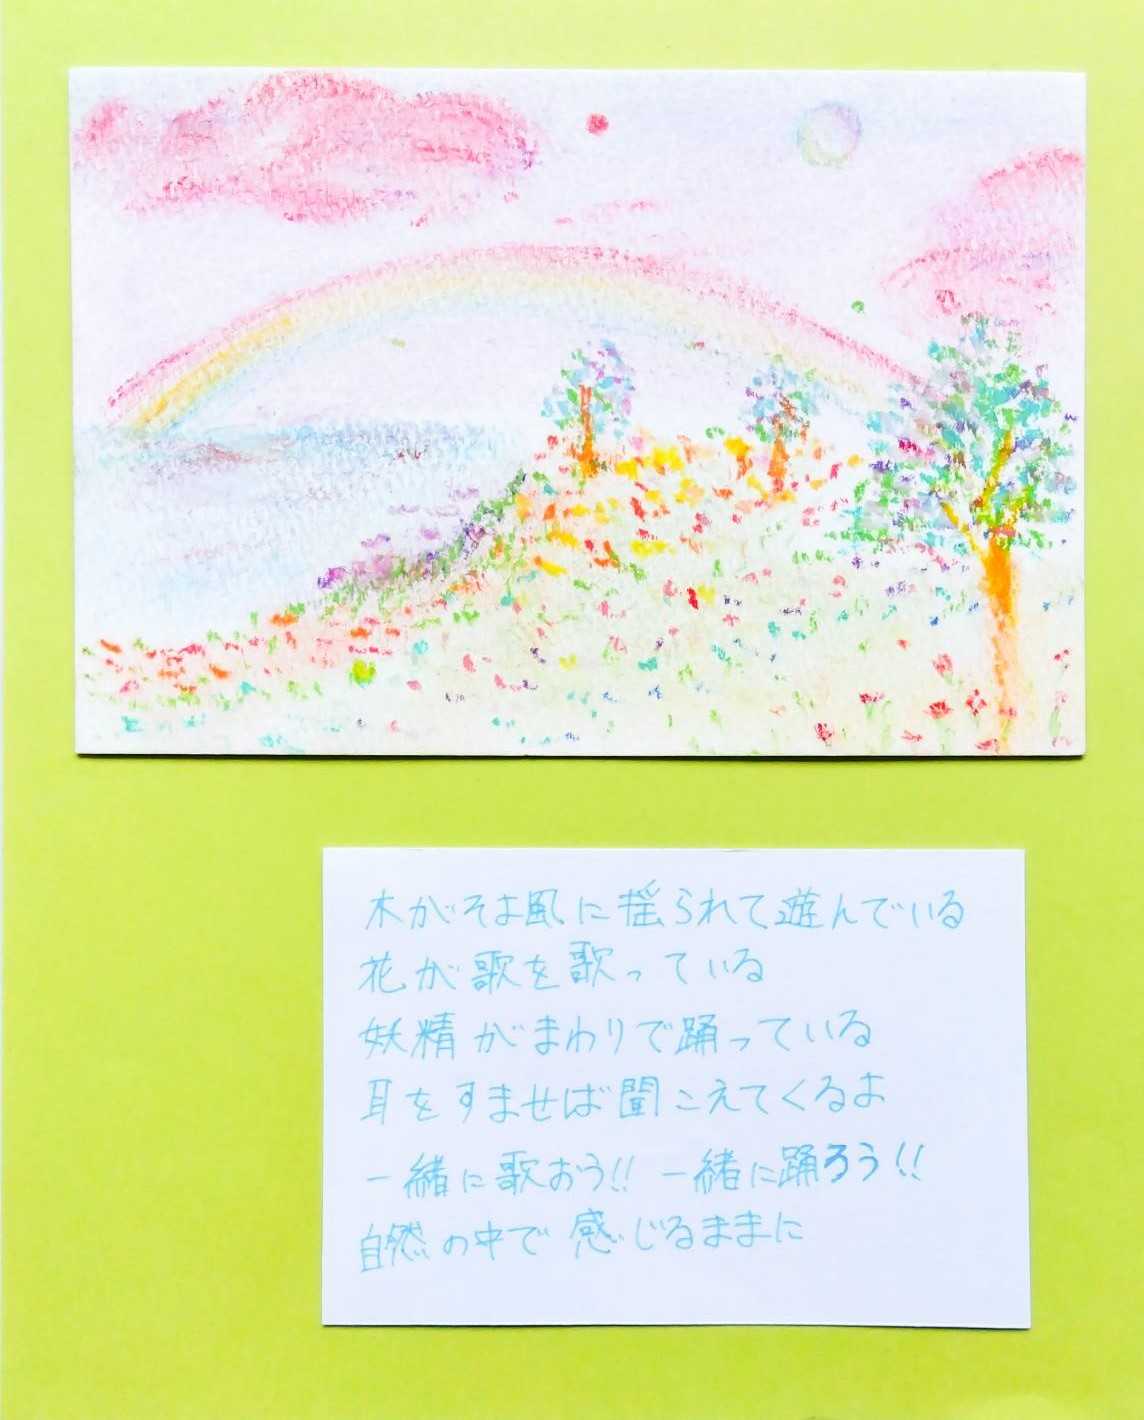 木がそよ風に揺られて遊んでいる
花が歌を歌っている
妖精がまわりで踊っている
耳をすませば聞こえてくるよ
一緒に歌おう!! 一緒に踊ろう!!
自然の中で感じるままに